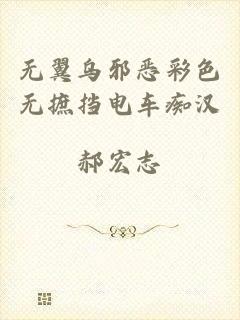 无翼乌邪恶彩色
无摭挡电车痴汉
郝宏志